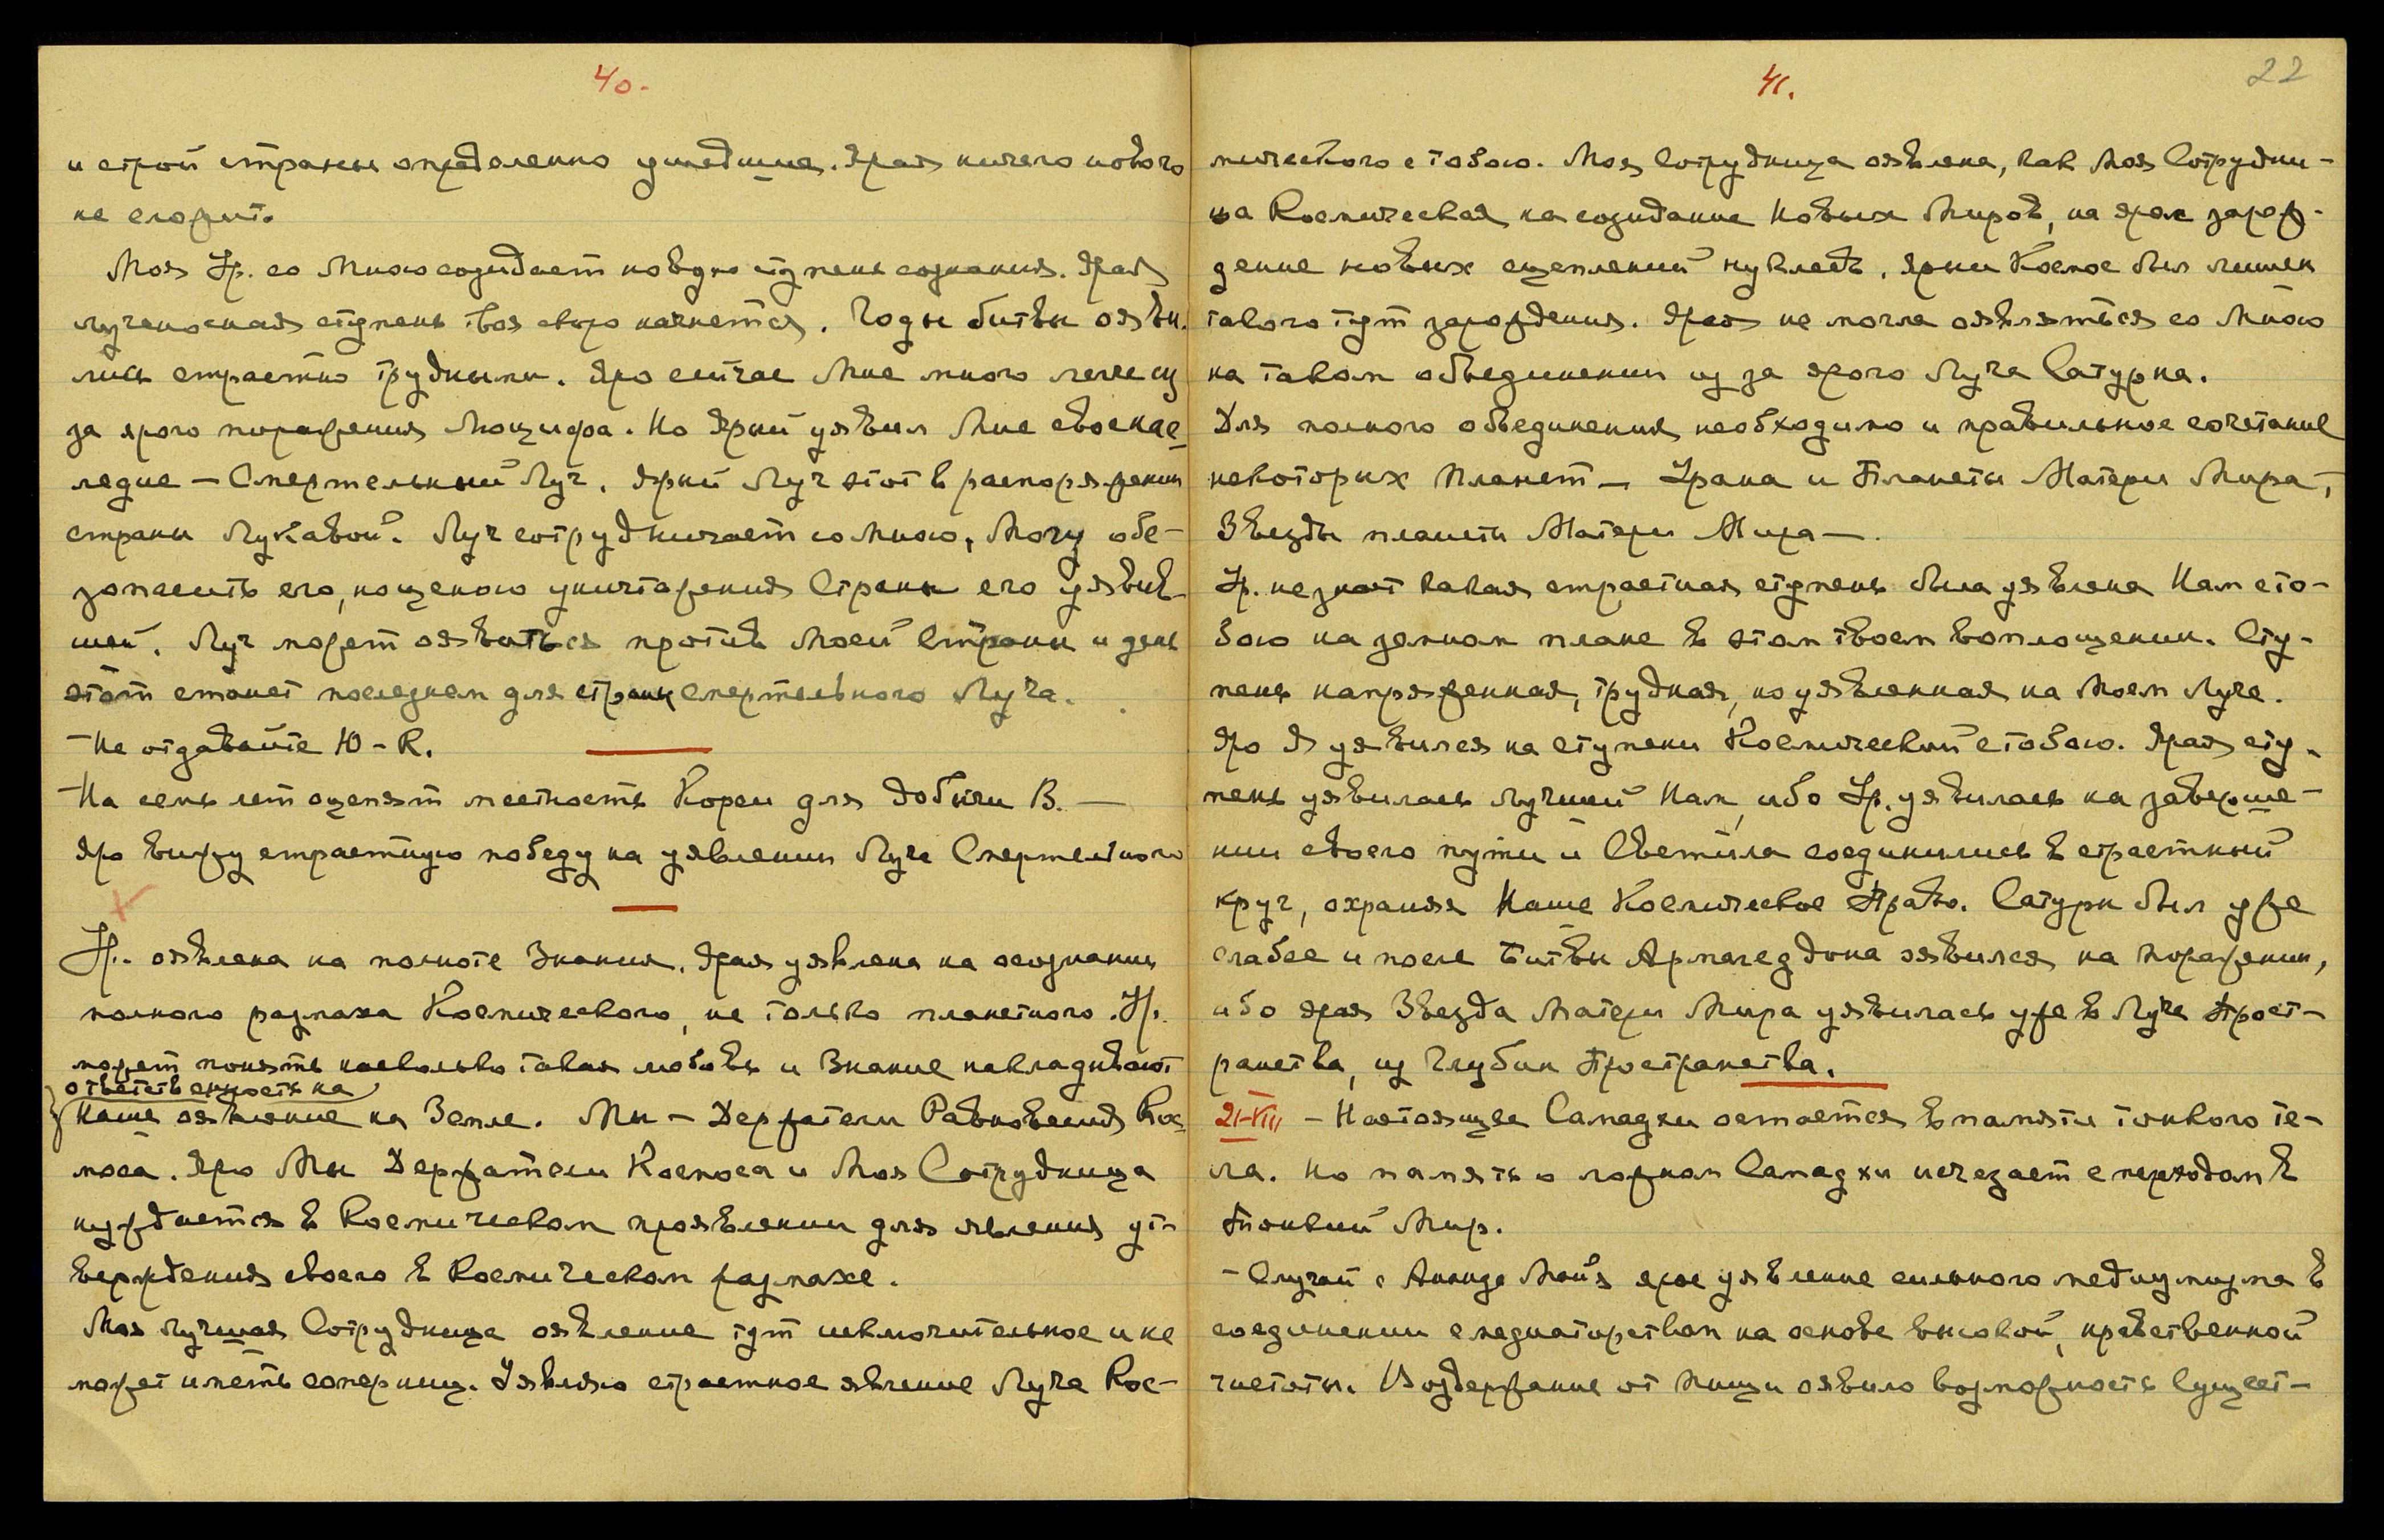 40.
и строй страны определенно ушедшие. Ярая ничего нового
не сложит.
Моя Ур. со Мною созидает новую ступень сознания. Ярая
лученосная ступень твоя скоро начнется. Годы битвы ояви-
лись страстно трудными. Яро сейчас Мне много легче из
за ярого поражения Люцифра. Но Ярый уявил Мне свое нас-
ледие — Смертельный Луч. Ярый Луч этот в распоряжении
страны Лукавой. Луч сотрудничает со Мною, Могу обе-
зопасить его, но ценою уничтожения Страны его уявив-
шей. Луч может оявиться против Моей Страны и день
этот станет последнем для страны смертельного Луча.
— Не отдавайте Ю-К.
— На семь лет оценят местность Кореи для добычи В. —
Яро вижу страстную победу на уявлении Луча Смертельного
Ур. оявлена на полноте Знания. Ярая уявлена на осознании
полного размаха Космического, не только планетного. Ур.
может понять насколько такая любовь и Знание накладывают
ответственность на
Наше оявление на Земле. Мы — Держатели Равновесия Кос-
моса. Яро Мы Держатели Космоса и Моя Сотрудница
нуждается в Космическом проявлении для явления ут-
верждения своего в Космическом размахе.
Моя лучшая Сотрудница оявление тут исключительное и не
может иметь соперниц. Уявляю страстное явление Луча Кос-
41.
22
мического с тобою. Моя Сотрудница оявлена, как Моя Сотрудни-
ца Космическая на созидание Новых Миров, на ярое зарож-
дение новых сцеплений нуклеев. Ярый Космос был лишен
такого тут зарождения. Ярая не могла оявляться со Мною
на таком объединении из за ярого Луча Сатурна.
Для полного объединения необходимо и правильное сочетание
некоторых планет — Урана и Планеты Матери Мира,
Звезды планеты Матери Мира —.
Ур. не знает какая страстная ступень была уявлена Нам с то-
бою на земном плане в этом твоем воплощении. Сту-
пень напряженная, трудная, но уявленная на Моем Луче.
Яро Я уявился на ступени Космической с тобою. Ярая сту-
пень уявилась лучшей Нам, ибо Ур. уявилась на заверше-
нии своего пути и Светила соединились в страстный
круг, охраняя Наше Космическое Право. Сатурн был уже
слабее и после Битвы Армагеддона оявился на поражении,
ибо ярая Звезда Матери Мира уявилась уже в Луче Прост-
ранства, из Глубин Пространства.
21-VIII — Настоящее Самадхи остается в памяти тонкого те-
ла. Но память о ложном Самадхи исчезает с переходом в
Тонкий Мир.
— Случай с Ананда Мойя ярое уявление сильного медиумизма в
соединении с медиаторством на основе высокой, нравственной
чистоты. Воздержание от пищи оявило возможность Сущест-